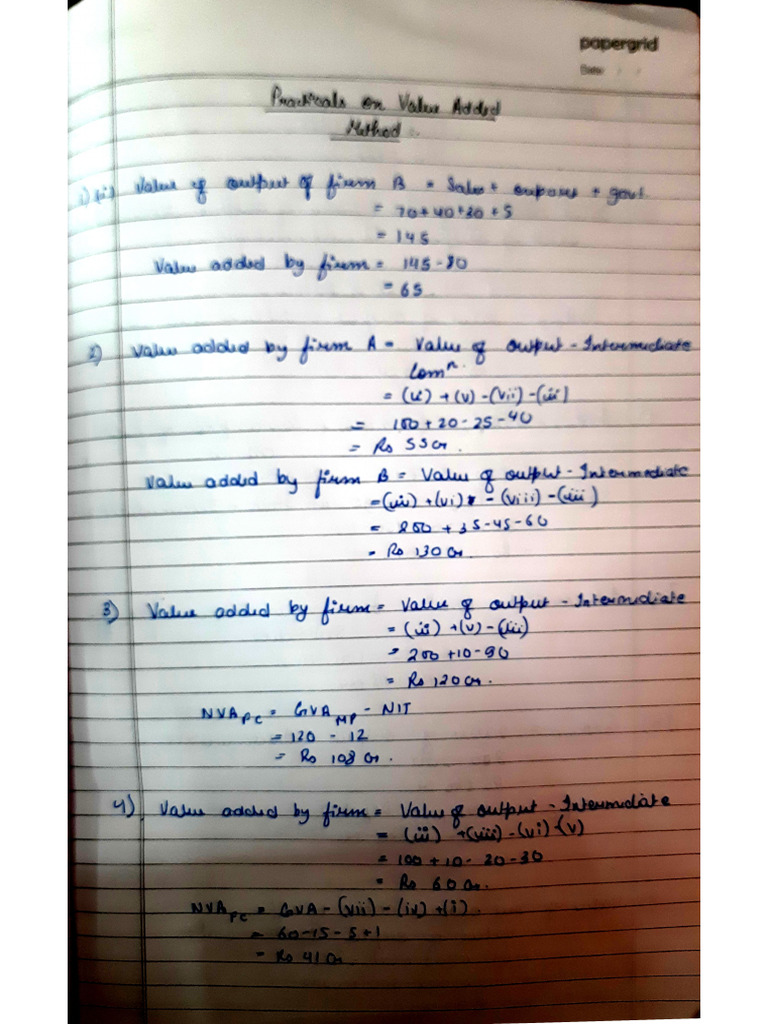 papergrid
Date: / /
Practicals on Value Added
Method.
1) (ii) Value of output of firm B = Sales + exports + govt
= 70+40+30+5
= 145
Value added by firm = 145-80
= 65
2) Value added by firm A = Value of output - Intermediate
Comⁿ.
= (ii) + (v) - (vii) - (iii)
= 100+20-25-40
= Rs 55 Cr.
Value added by firm B = Value of output - Intermediate
= + (vi) - (viii) - (iii)
= 200 + 35-45-60
= Rs 130 Cr.
3) Value added by firm = Value of output - Intermediate
= (ii) + (v) - (iii)
= 200+10-90
= Rs 120 Cr.
NVA FC = GVA MP - NIT
= 120 - 12
= Rs 108 Cr.
4) Value added by firm = Value of output - Intermediate
= (iii) + (viii) - (vi) - (v)
= 100+10-20-30
= Rs 60 Cr.
NVA FC = GVA - (vii) - (iv) + (i).
= 60-15-5+1
= Rs 41 Cr